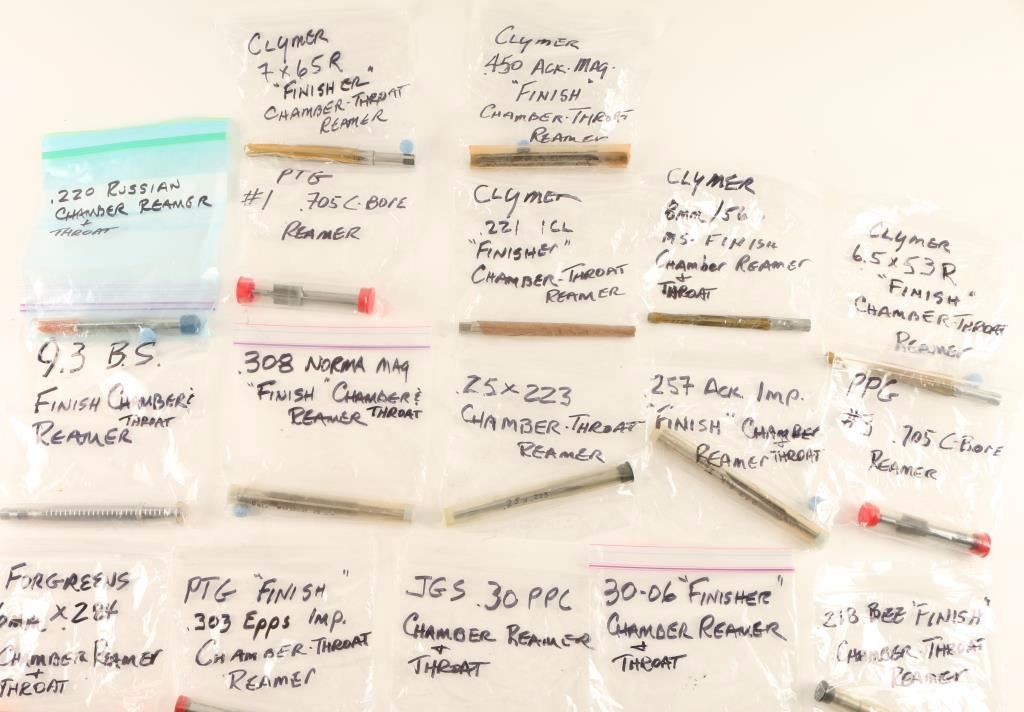 CLYMER
7x65R
"FINISHER"
CHAMBER-THROAT
REAMER
CLYMER
.450 ACK. MAG.
"FINISH"
CHAMBER-THROAT
REAMER
.220 RUSSIAN
CHAMBER REAMER
+
THROAT
PTG
#1 .705 C-BORE
REAMER
CLYMER
.221 ICL
"FINISHER"
CHAMBER-THROAT
REAMER
CLYMER
8mm/56
M.S. FINISH
CHAMBER REAMER
+
THROAT
CLYMER
6.5x53R
"FINISH"
CHAMBER-THROAT
REAMER
9.3 B.S.
FINISH CHAMBER &
THROAT
REAMER
.308 NORMA MAG
"FINISH" CHAMBER &
REAMER THROAT
.25x223
CHAMBER-THROAT
REAMER
.25 x 223
257 ACK IMP.
"FINISH" CHAMBER
+
REAMER THROAT
PPG
.705 C-BORE
REAMER
FORGREENS
x 284
CHAMBER REAMER
+
THROAT
PTG "FINISH"
.303 EPPS IMP.
CHAMBER-THROAT
REAMER
JGS .30 PPC
CHAMBER REAMER
+
THROAT
30-06 "FINISHER"
CHAMBER REAMER
+
THROAT
218 BEE "FINISH"
CHAMBER-THROAT
REAMER